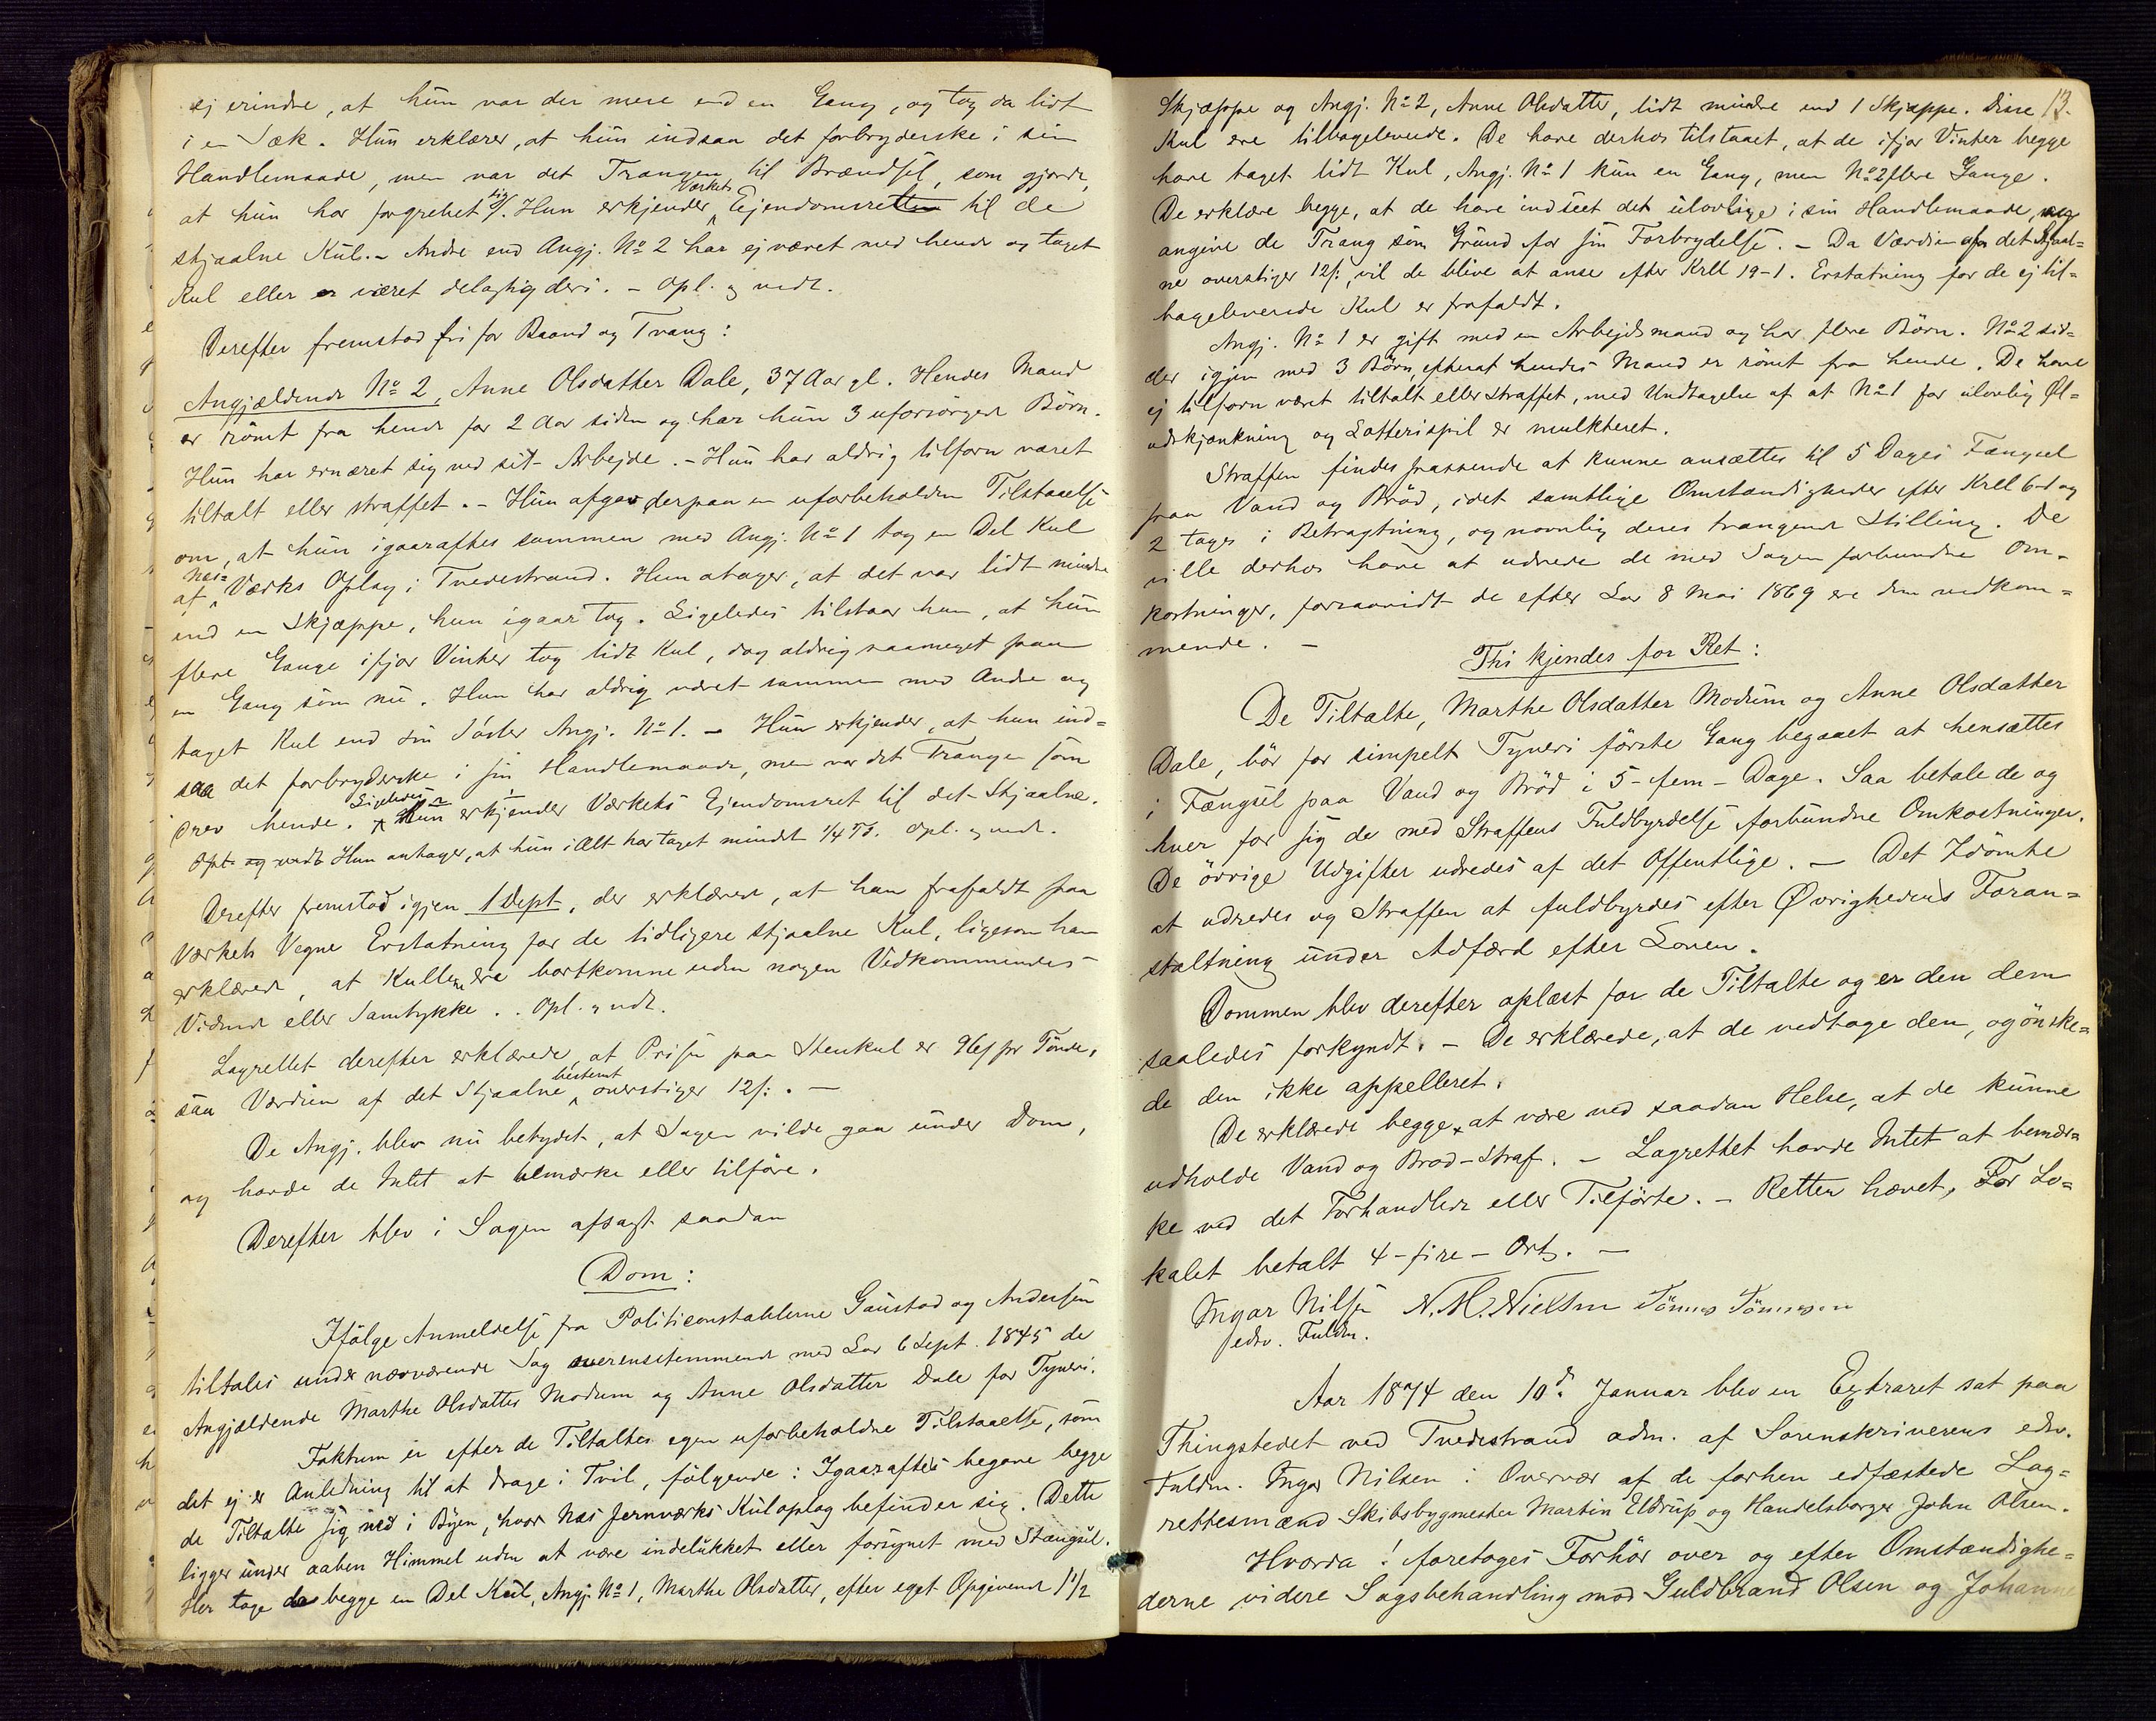 ej erindre, at hun var der mere end en Gang, og tog da lidt
i en Sæk. Hun erklærer, at hun indsaa det forbryderske i sin
Handlemaade, men var det Trangen til Brændsel, som gjorde,
at hun har forgrebet sig. Hun erkjender Værkets Ejendomsret til de
stjaalne Kul. - Andre end Angj. No 2 har ej været med hende og taget
Kul eller er været delagtig deri. - Opl. og vedt.
Derefter fremstod fri for Baand og Tvang:
Angjældende No 2, Anne Olsdatter Dale, 37 Aar gl. Hendes Mand
er römt fra hende for 2 Aar siden og har hun 3 uforsörgede Börn.
Hun har ernæret sig ved sit Arbejde. - Hun har aldrig tilforn været
tiltalt eller straffet. - Hun afgav derpaa en uforbeholden Tilstaaelse
om, at hun igaaraftes sammen med Angj. No 1 tog en Del Kul
af Næs Værks Oplag i Tvedestrand. Hun antager, at det var lidt mindre
end en Skjæppe, hun igaar tog. Ligeledes tilstaar hun, at hun
flere Gange ifjor Vinter tog lidt Kul, dog aldrig saameget paa
en Gang som nu. Hun har aldrig været sammen med Andre og
taget Kul end sin Söster Angj. No 1. - Hun erkjender, at hun ind=
saa det forbryderske i sin Handlemaade, men var det Trangen som
drev hende. Ligeledes erkjender hun Værkets Ejendomsret til det Stjaalne.
Opl. og vedt. Hun antager, at hun ialt har taget mindst 1/4 Td. Opl. og vedt.
Derefter fremstod igjen 1 Dept, der erklærede, at han frafaldt paa
Værkets Vegne Erstatning for de tidligere stjaalne Kul, ligesom han
erklærede, at Kullene ere bortkomne uden nogen Vedkommendes
Vidende eller Samtykke. . Opl. og vedt.
Lagrettet derefter erklærede, at Prisen paa Stenkul er 96 s pr Tönde,
saa Værdien af det Stjaalne bestemt overstiger 12 s:. -
De Angj. blev nu betydet, at Sagen vilde gaa under Dom,
og havde de Intet at bemærke eller tilföre.
Derefter blev i Sagen afsagt saadan
Dom:
Ifölge Anmeldelse fra Politiconstablerne Gaustad og Andersen
tiltales under nærværende Sag overensstemmende med Lov 6 Sept. 1845 de
Angjældende Marthe Olsdatter Modum og Anne Olsdatter Dale for Tyveri.
Faktum er efter de Tiltaltes egen uforbeholdne Tilstaaelse, som
det ej er Anledning til at drage i Tvil, fölgende: Igaaraftes begave begge
de Tiltalte sig ned i Byen, hvor Næs Jernværks Kuloplag befinder sig. Dette
ligger under aaben Himmel uden at være indelukket eller forsynet med Stængsel.
Her toge de begge en Del Kul, Angj. No 1, Marthe Olsdatter, efter eget Opgivende 1 1/2
13.
Skjæppe og Angj. No 2, Anne Olsdatter, lidt mindre end 1 Skjæppe. Disse
Kul ere tilbageleverede. De have derhos tilstaaet, at de ifjor Vinter begge
have taget lidt Kul, Angj. No 1 kun en Gang, men No 2 flere Gange.
De erklære begge, at de have indseet det ulovlige i sin Handlemaade, og
angive de Trang som Grund for sin Forbrydelse. - Da Værdien af det Stjaal=
ne overstiger 12 s:, vil de blive at anse efter Krll 19-1. Erstatning for de ej til=
bageleverede Kul er frafaldt.
Angj. No 1 er gift med en Arbejdsmand og har flere Börn. No 2 sid=
der igjen med 3 Börn, efterat hendes Mand er römt fra hende. De have
ej tilforn været tiltalt eller straffet, med Undtagelse af at No 1 for ulovlig Øl=
udskjænkning og Lotterispil er mulkteret.
Straffen findes passende at kunne ansættes til 5 Dages Fængsel
paa Vand og Bröd, idet samtlige Omstændigheder efter Krll 6-1 og
2 tages i Betragtning, og navnlig deres trængende Stilling. De
ville derhos have at udrede de med Sagen forbundne Om=
kostninger, forsaavidt de efter Lov 8 Mai 1869 ere dem vedkom=
mende. -
Thi kjendes for Ret:
De Tiltalte, Marthe Olsdatter Modum og Anne Olsdatter
Dale, bör for simpelt Tyveri förste Gang begaaet at hensættes
i Fængsel paa Vand og Bröd i 5 - fem - Dage. Saa betale de og
hver for sig de med Straffens Fuldbyrdelse forbundne Omkostninger.
De övrige Udgifter udredes af det Offentlige. - Det Idömte
at udredes og Straffen at fuldbyrdes efter Øvrighedens Foran=
staltning under Adfærd efter Loven.
Dommen blev derefter oplæst for de Tiltalte og er den dem
saaledes forkyndt. - De erklærede, at de vedtage den, og önske=
de den ikke appelleret.
De erklærede begge at være ved saadan Helse, at de kunne
udholde Vand og Bröd-Straf. - Lagrettet havde Intet at bemær=
ke ved det Forhandlede eller Tilförte. - Retten hævet. For Lo=
kalet betalt 4 - fire - Ort. -
Ingar Nilsen N. M. Nielsen Tönnes Tönnesen
edsv. Fuldm.
Aar 1874 den 10de Januar blev en Extraret sat paa
Thingstedet ved Tvedestrand adm. af Sorenskriverens edsv.
Fuldm. Ingar Nilsen i Overvær af de forhen edfæstede Lag=
rettesmænd Skibsbygmester Martin Eldrup og Handelsborger John Olsen.
Hvorda! foretoges Forhör over og efter Omstændighe=
derne videre Sagsbehandling mod Guldbrand Olsen og Johanne